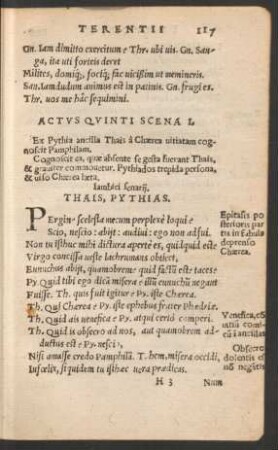 TERENTII 117
Gn. Iam dimitto exercitum e Thr. ubi uis. Gn. San-
ga, ita uti fortes deret
Milites, domiq;, fociq; fac uicißim ut memineris.
San. Iamdudum animus est in patinis. Gn. frugi es.
Thr. uos me hàc sequimini.
ACTVS QVINTI SCENA I.
Ex Pythia ancilla Thais à Chærea uitiatam cog-
noscit Pamphilam.
Cognoscit ea, quæ absente se gesta fuerant Thais,
& grauiter commouetur. Pythiados trepida persona,
& uiso Chærea læta,
Iambici senarij.
THAIS, PYTHIAS.
Pergin' scelesta mecum perplexè loqui e
Scio, nescio: abijt: audiui: ego non adfui.
Non tu istbuc mihi dictura aperte es, quidquid est e
Virgo conscissa ueste lachrumans obticet,
Eunuchus abijt, quamobrem e quid factū est e taces e
Py. Quid tibi ego dicã misera e illū eunuchū negant
Fuisse. Th. quis fuit igitur e Py. iste Cherea.
Th. Qui Chærea e Py. iste ephebus frater Phedriæ.
Th. Quid ais uenefica e Py. atqui certò comperi.
Th. Quid is obsecro ad nos, aut quamobrem ad-
ductus est e Py. nesci,
Nisi amasse credo Pamphilã. T. hem, misera occidi,
Infœlix, si quidem tu istæc uera prædicas.
H 3 Num
Epitasis po
sterioris par
tis in fabula
deprenso
Chærea.
Venefica, cō
uitii comi
ci ancillis
Obsecro
dolentis est
nō negātis